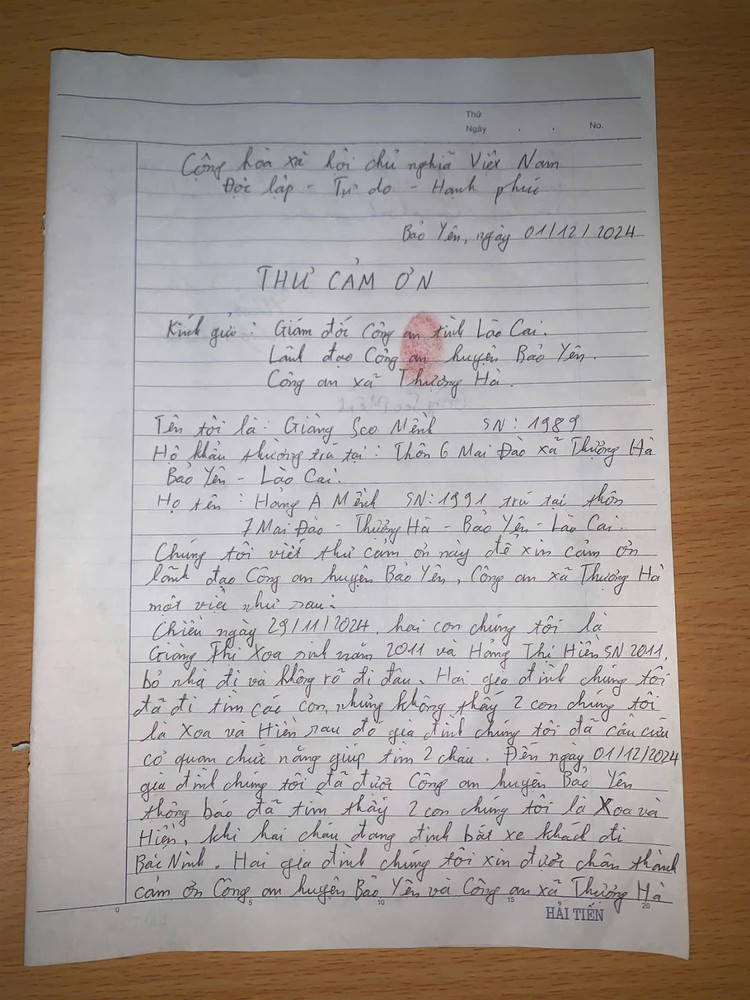 Thứ
Ngày . . No.
Cộng hòa xã hội chủ nghĩa Việt Nam
Độc lập - Tự do - Hạnh phúc
Bảo Yên, ngày 01/12/2024
THƯ CẢM ƠN
Kính gửi : Giám đốc Công an tỉnh Lào Cai.
Lãnh đạo Công an huyện Bảo Yên.
Công an xã Thượng Hà.
Tên tôi là : Giàng Seo Mềnh SN : 1989
Hộ khẩu thường trú tại : Thôn 6 Mai Đào xã Thượng Hà
Bảo Yên - Lào Cai.
Họ tên : Hảng A Mềnh SN : 1991 trú tại thôn
7 Mai Đào - Thượng Hà - Bảo Yên - Lào Cai.
Chúng tôi viết thư cảm ơn này để xin cảm ơn
lãnh đạo Công an huyện Bảo Yên, Công an xã Thượng Hà
một việc như sau:
Chiều ngày 29/11/2024. hai con chúng tôi là
Giàng Thị Xoa sinh năm 2011 và Hảng Thị Hiền SN 2011,
bỏ nhà đi và không rõ đi đâu. Hai gia đình chúng tôi
đã đi tìm các con, nhưng không thấy 2 con chúng tôi
là Xoa và Hiền sau đó gia đình chúng tôi đã cầu cứu
cơ quan chức năng giúp tìm 2 cháu. Đến ngày 01/12/2024
gia đình chúng tôi đã được Công an huyện Bảo Yên
thông báo đã tìm thấy 2 con chúng tôi là Xoa và
Hiền, khi hai cháu đang định bắt xe khách đi
Bắc Ninh. Hai gia đình chúng tôi xin được chân thành
cảm ơn Công an huyện Bảo Yên và Công an xã Thượng Hà
0 5 10 15 20
HẢI TIẾN